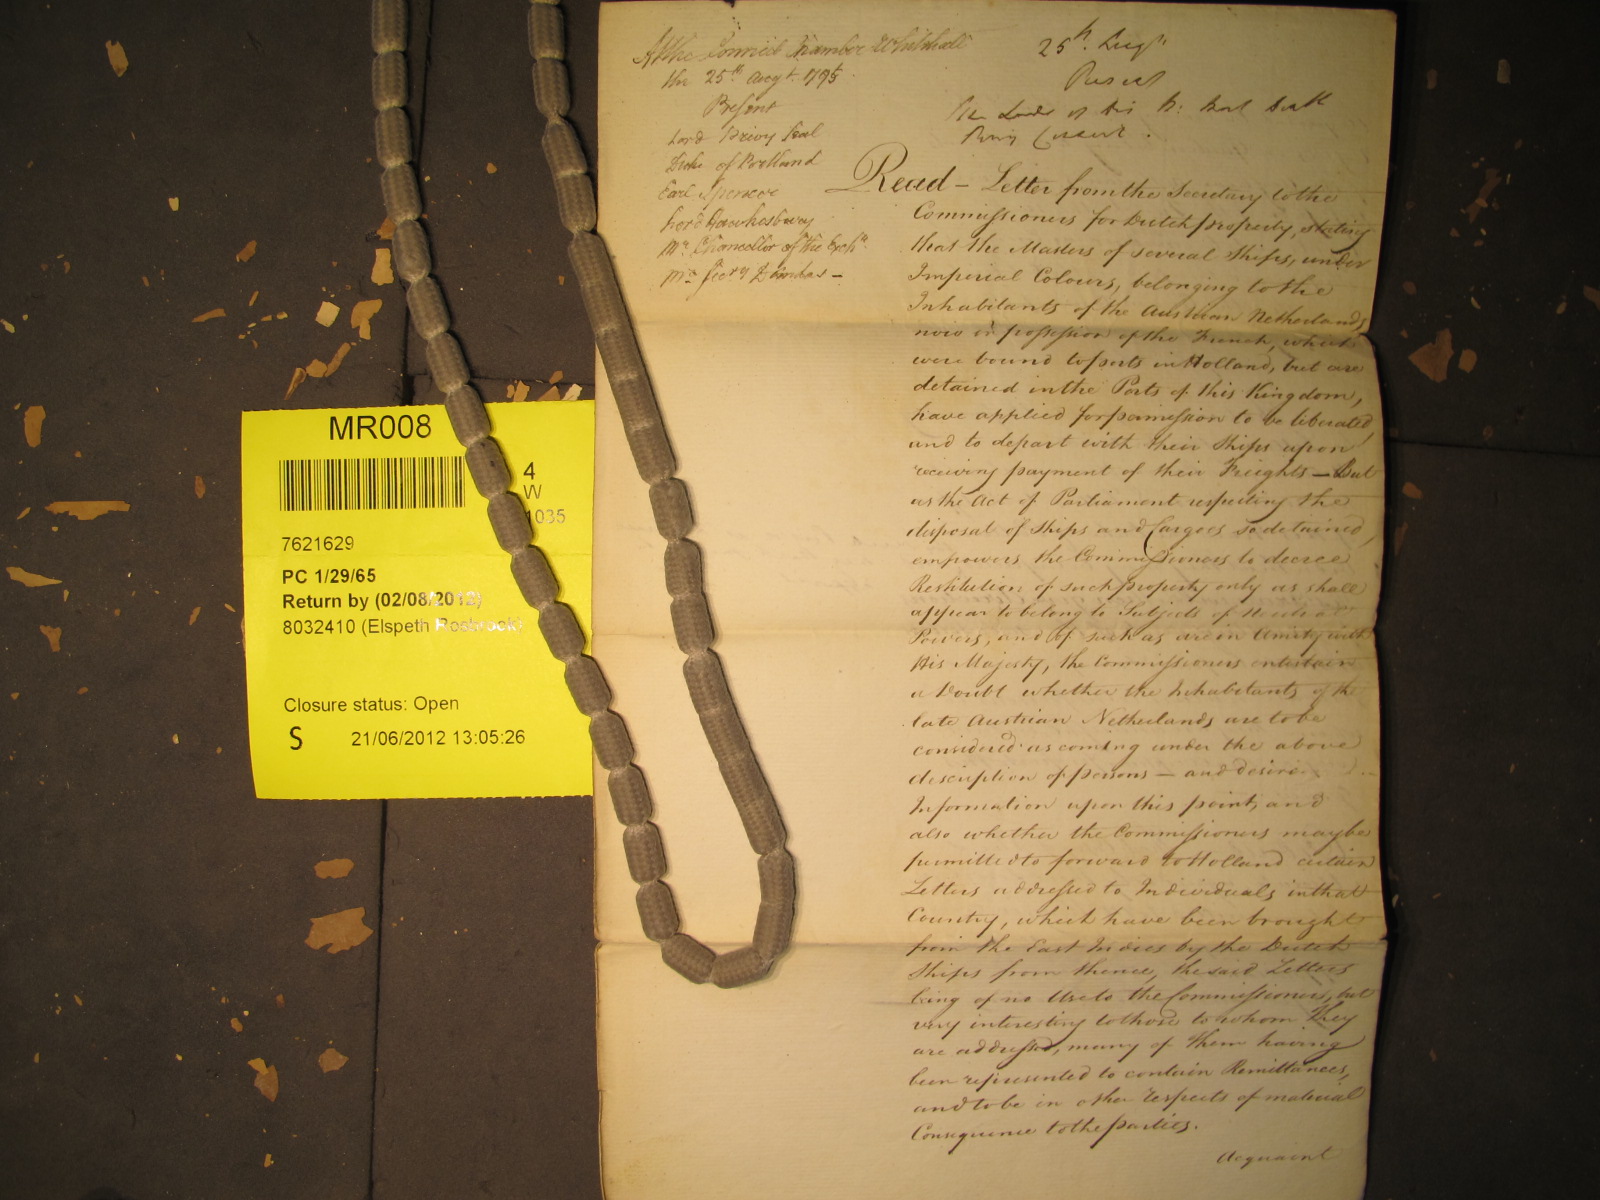 MR008
4
W
1035
7621629
PC 1/29/65
Return by (02/08/2012)
8032410 (Elspeth Rosbrook)
Closure status: Open
S 21/06/2012 13:05:26
At the Council Chamber Whitehall
the 25th Augt. 1795
Present
Lord Privy Seal
Duke of Portland
Earl Spencer
Lord Hawkesbury
Mr. Chancellor of the Exchr.
Mr. Secry Dundas -
25th. Augt
Present
The Lords of His M: Most
Privy Council.
Read - Letter from the Secretary to the
Commissioners for Dutch property, stating
that the Masters of several Ships, under
Imperial Colours, belonging to the
Inhabitants of the Austrian Netherlands
now in possession of the French, which
were bound to ports in Holland, but are
detained in the Ports of this Kingdom,
have applied for permission to be liberated
and to depart with their Ships upon
receiving payment of their Freights - But
as the Act of Parliament respecting the
disposal of Ships and Cargoes so detained,
empowers the Commissioners to decree
Restitution of such property only as shall
appear to belong to Subjects of Neutral
Powers, and of such as are in Amity with
His Majesty, the Commissioners entertain
a Doubt whether the Inhabitants of the
late Austrian Netherlands are to be
considered as coming under the above
description of persons - and desire
Information upon this point, and
also whether the Commissioners may be
permitted to forward to Holland certain
Letters addressed to Individuals in that
Country, which have been brought
from the East Indies by the Dutch
Ships from thence, the said Letters
being of no Use to the Commissioners, but
very interesting to those to whom they
are addressed, many of them having
been represented to contain Remittances,
and to be in other respects of material
Consequence to the parties.
Acquaint